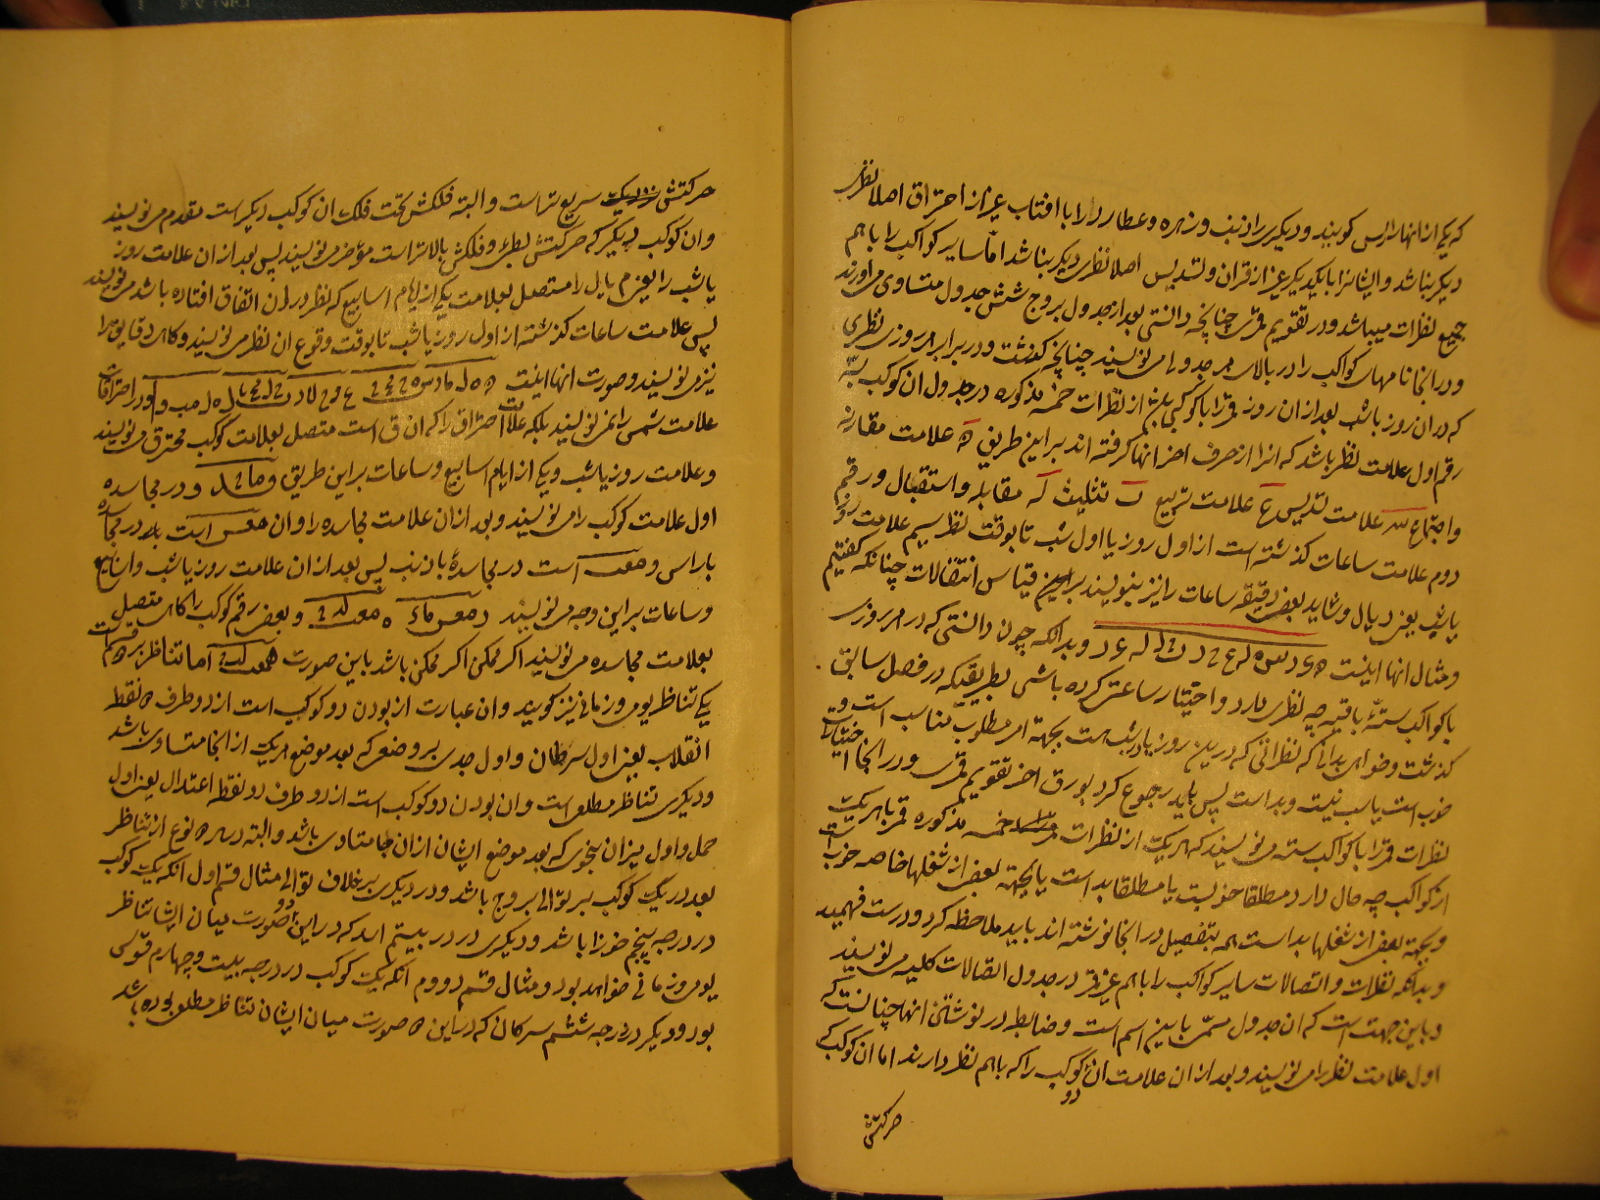 که یکی از انها را راس کویند و دیکری را ذنب و زهره و عطارد را با افتاب غیر از احتراق اصلا نظری
دیکر نباشد و ایشانرا با یکدیکر غیر از قران و تسدیس اصلا نظری دیکر نباشد اما سایر کواکب را با هم
جمیع نظرات میباشد و در تقویم قمر چنانچه دانستی بعد از جدول بروج شش جدول متساوی می اورند
و در انجا نامهای کواکب را در بالای هر جدولی می نویسند چنانچه کفتشت و در برابر هر روزی نظری
که در ان روز یا شب بعد از ان روز قمر را با کوکبی باشد از نظرات خمسه مذکوره در جدول ان کوکب
رقم اول علامت نظر باشد که انرا از حرف اخر انها کرفته اند بر این طریق ه علامت مقارنه
و اجتماع س علامت تسدیس ع علامت تربیع ث تثلیث له مقابله و استقبال و رقم
دوم علامت ساعات کذشته است از اول روز یا اول شب تا بوقت نظر سیم علامت روز
یا شب یعنی ر یا ل و شاید بعضی دقیقه ساعات را نیز بنویسند بر این قیاس انتقالات چنانکه کفتیم
و مثال انها اینست و بدانکه چون دانستی که در هر روزی
با کواکب ستهٔ باقیه چه نظری دارد و اختیار ساعتی کرده باشی بطریقیکه در فصل سابق
کذشت و خواهی بدانی که نظراتی که در این روز یا در شب است بجهة امر مطلوب مناسب است و
خوب است یا مناسب نیست و بد است پس باید رجوع کرد بورق اخر تقویم قمر و در انجا اختیارات
نظرات قمر را با کواکب سته می نویسند که هر یک از نظرات خمسه مذکوره قمر با هر یک
از کواکب چه حال دارد مطلقا خوبست یا مطلقا بد است یا بجهة بعضی از شغلها خاصه خوب است
و بجهة بعضی از شغلها بد است همه بتفصیل در انجا نوشته اند باید ملاحظه کرد و درست فهمید
و بدانکه نظرات و اتصالات سایر کواکب را با هم غیر قمر در جدول اتصالات کلیه می نویسند
و باین جهت است که ان جدول مسمی باین اسم است و ضابط در نوشتن انها چنانست که
اول علامت نظر را می نویسند و بعد از ان علامت ان دو کوکب را که با هم نظر دارند اما ان کوکب که
حرکتش
حرکتش سریع تر است و البته فلکش تحت فلک ان کوکب دیکر است مقدم می نویسند
و ان کوکب دیکر که حرکتش بطیء و فلکش بالاتر است مؤخر می نویسند پس بعد از ان علامت روز
یا شب را یعنی م یا ل را متصل بعلامت یکی از ایام اسابیع که نظر در ان اتفاق افتاده باشد می نویسند
پس علامت ساعات کذشته از اول روز یا شب تا بوقت وقوع ان نظر می نویسند و کاهی دقایق را
نیز می نویسند و صورت انها اینست و در احتراقات
علامت شمس را نمی نویسند بلکه علامت احتراق را که ان ق است متصل بعلامت کوکب محترق می نویسند
و علامت روز یا شب و یکی از ایام اسابیع و ساعات بر این طریق و در مجاسده
اول علامت کوکب را می نویسند و بعد از ان علامت مجاسده را و ان است در مجاسده
با راس و است در مجاسدهٔ با ذنب پس بعد از ان علامت روز یا شب و اسابیع
و ساعات بر این وجه می نویسند و بعضی رقم کوکب را کاهی متصل
بعلامت مجاسده می نویسند اکر ممکن باشد باین صورت اما تناظر بر دو قسم است
یکی تناظر یومی و زمانی نیز کویند و ان عبارت از بودن دو کوکب است از دو طرف نقطه
انقلاب یعنی اول سرطان و اول جدی بر وضعی که بعد موضع هر یک از انجا متساوی باشد
و دیکری تناظر مطلعی است و ان بودن دو کوکب است از دو طرف دو نقطه اعتدال یعنی اول
حمل و اول میزان بنحوی که بعد موضع ایشان از ان جا متساوی باشد و البته در هر دو نوع از تناظر
بعد در یک کوکب بر توالی بروج باشد و در دیکری بر خلاف توالی مثال قسم اول انکه یک کوکب
در درجه پنجم جوزا باشد و دیکری در در بیستم اسد که در این دو صورت میان ایشان تناظر
یومی و زمانی خواهد بود و مثال قسم دووم انکه یک کوکب در درجه بیست و چهارم قوس
بود و دیکر در درجه ششم سرطان که در این صورت میان ایشان تناظر مطلعی بوده باشد